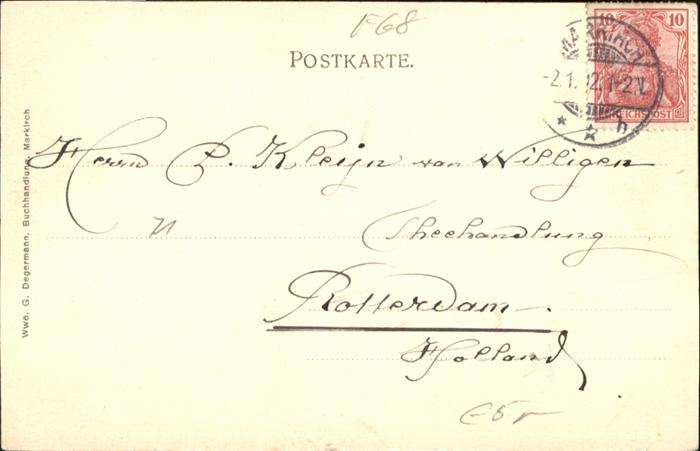 F68
POSTKARTE.
10 10
REICHSPOST
MARKIRCH
-2.1.02.1-2N.
* * b
Herrn P. Kleijn van Willigen
Theehandlung
Rotterdam.
Holland
Wwe. G. Degermann, Buchhandlung, Markirch